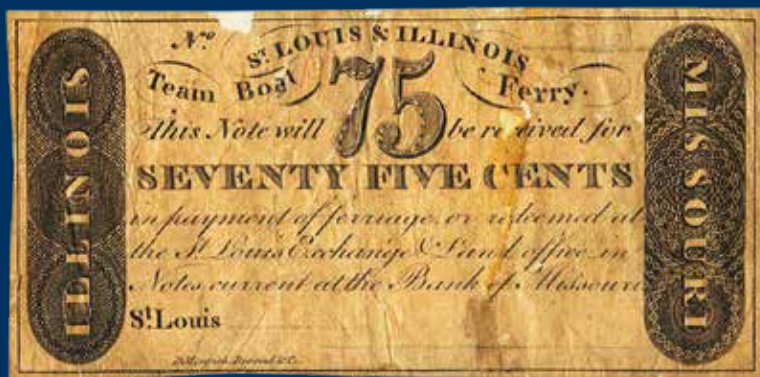 No
St. LOUIS & ILLINOIS
Team Boat 75 Ferry.
This Note will be received for
SEVENTY FIVE CENTS
in payment of ferriage, or redeemed at
the St. Louis Exchange & Land office in
Notes current at the Bank of Missouri
St. Louis
ILLINOIS
MISSOURI